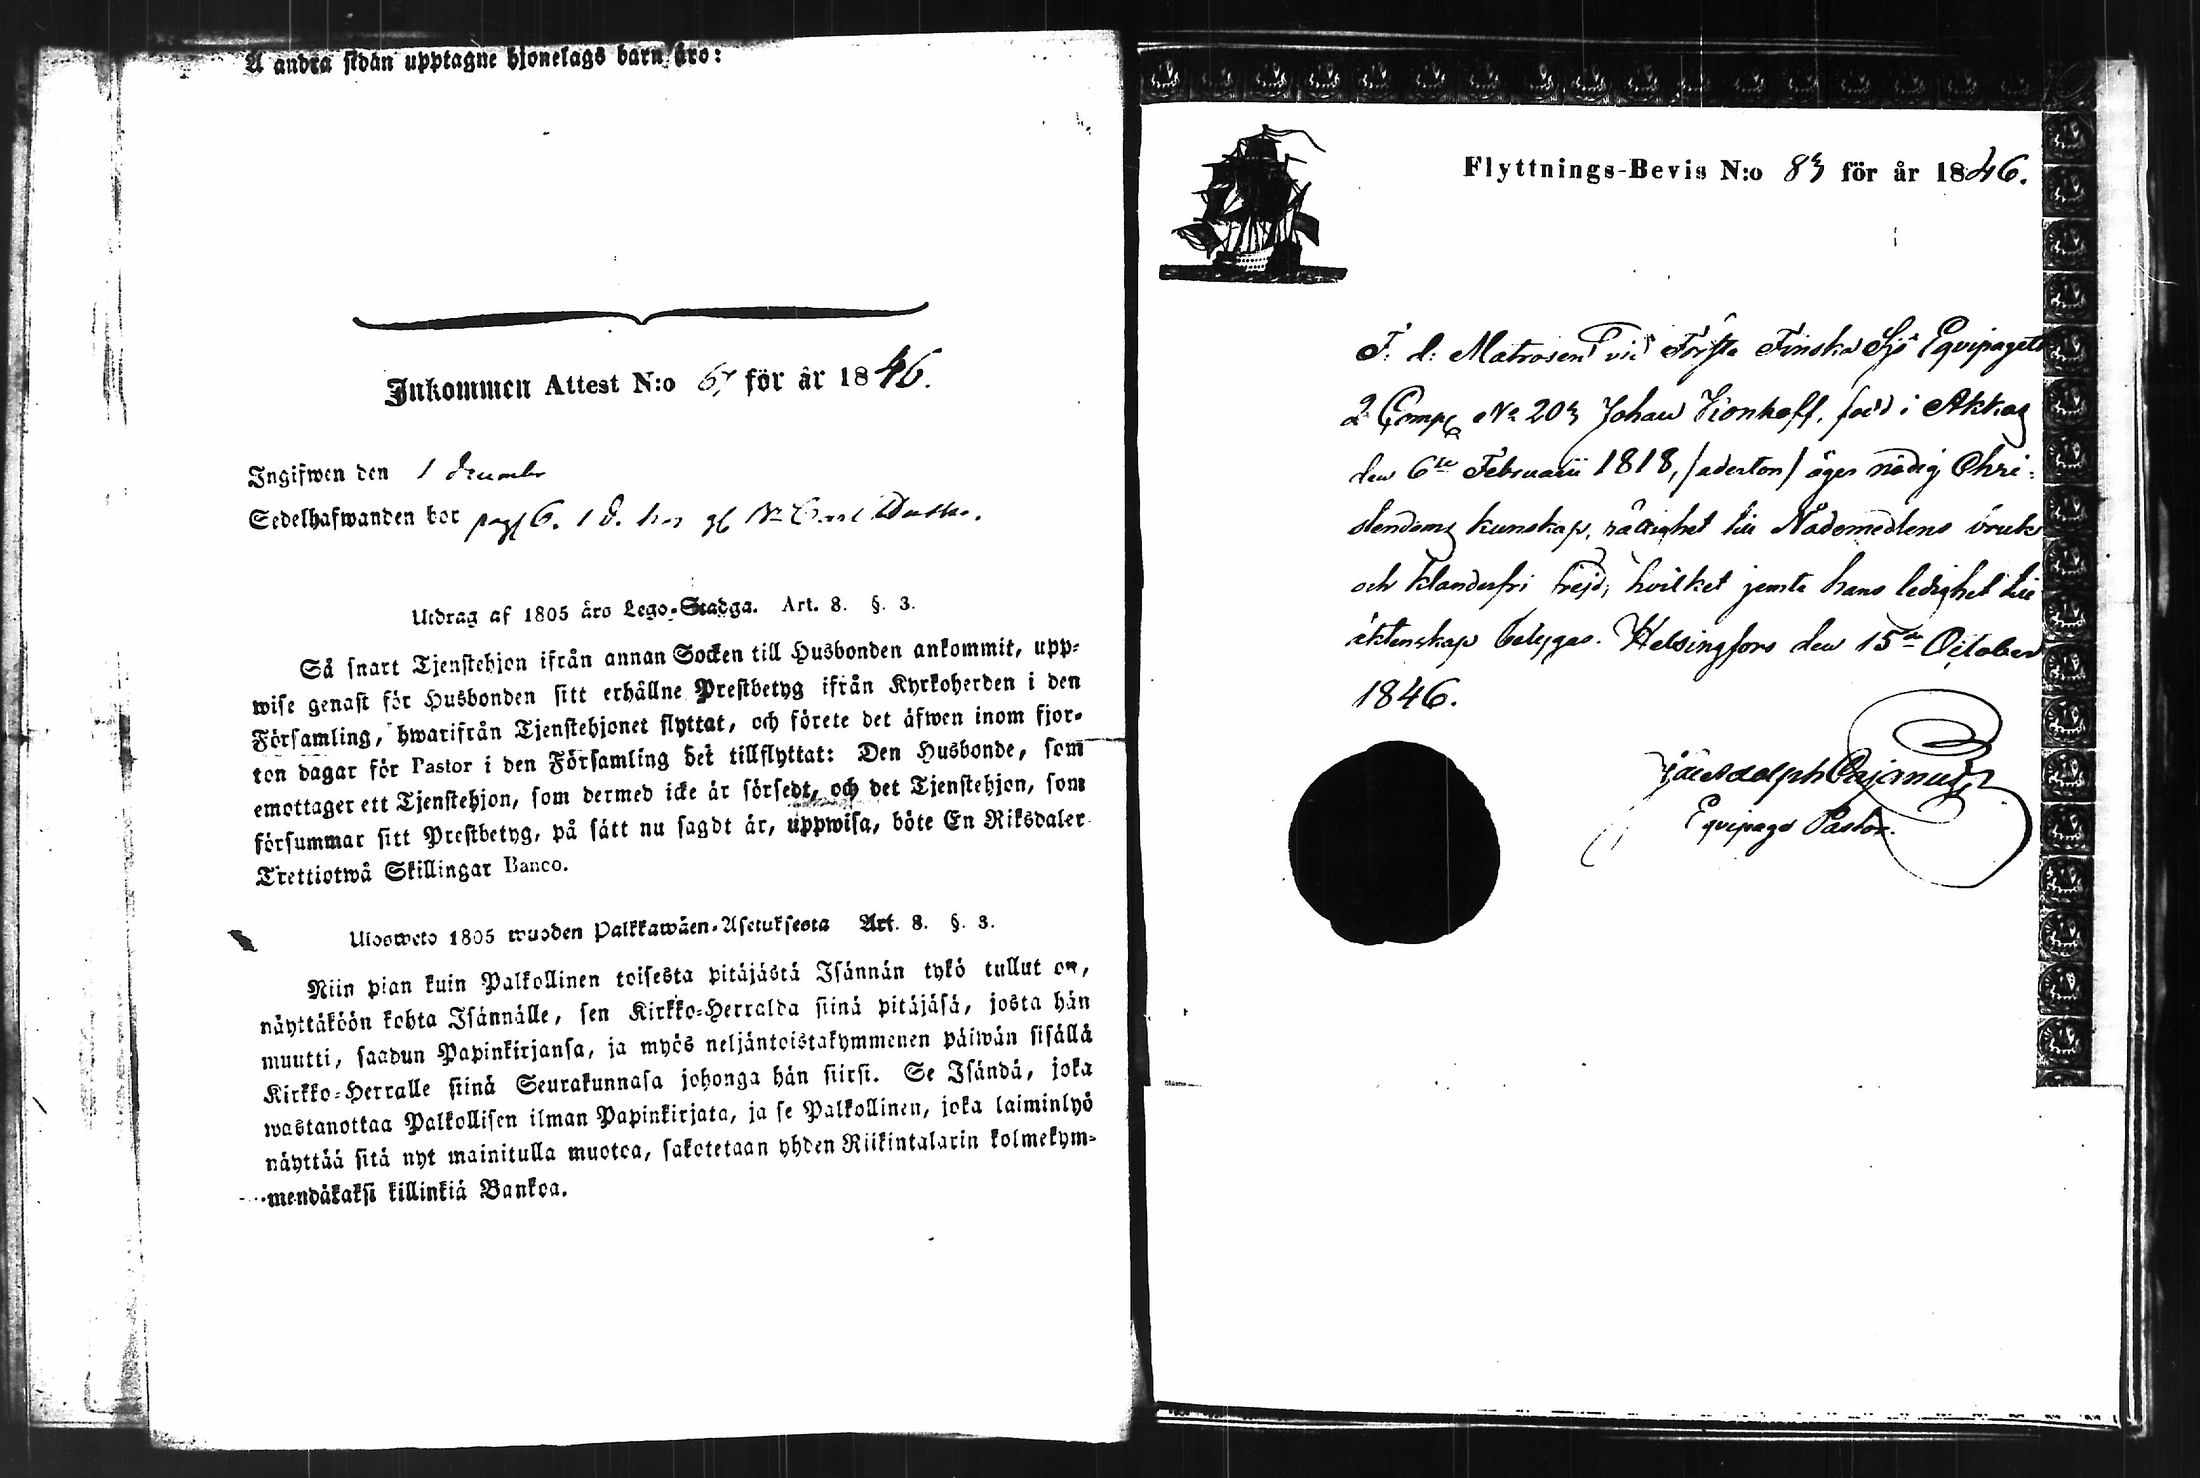 Å andra sidan upptagne hjonelags barn äro:
Inkommen Attest N:o 67 för år 1846.
Ingifwen den 1 december
Sedelhafwanden bor
Utdrag af 1805 års Lego-Stadga. Art. 8. §. 3.
Så snart Tjenstehjon ifrån annan Socken till Husbonden ankommit, upp-
wise genast för Husbonden sitt erhållne Prestbetyg ifrån Kyrkoherden i den
Församling, hwarifrån Tjenstehjonet flyttat, och förete det äfwen inom fjor-
ton dagar för Pastor i den Församling det tillflyttat: Den Husbonde, som
emottager ett Tjenstehjon, som dermed icke är försedt, och det Tjenstehjon, som
försummar sitt Prestbetyg, på sätt nu sagdt är, uppwisa, böte En Riksdaler
Trettiotwå Skillingar Banco.
Ulosweto 1805 wuoden Palkkawäen-Asetuksesta Art. 8. §. 3.
Niin pian kuin Palkollinen toisesta pitäjästä Isännän tykö tullut on,
näyttäköön kohta Isännälle, sen Kirkko-Herralda siinä pitäjäsä, josta hän
muutti, saadun Papinkirjansa, ja myös neljäntoistakymmenen päiwän sisällä
Kirkko-Herralle siinä Seurakunnasa johonga hän siirsi. Se Isändä, joka
wastanottaa Palkollisen ilman Papinkirjata, ja se Palkollinen, joka laiminlyö
näyttää sitä nyt mainitulla muotoa, sakotetaan yhden Riikintalarin kolmekym-
mendäkaksi killinkiä Bankoa.
Flyttnings-Bevis N:o 83 för år 1846.
F. d. Matrosen vid Första Finska Sjö Equipagets
2 Comp. No 203 Johan Kionkoff, född i Akkas
den 6te Februarii 1818, /aderton/ äger nödig Chri-
stendoms kunskap, rättighet till Nådemedlens bruk
och klanderfri frejd; hvilket jemte hans ledighet till
äktenskap betygas. Helsingfors den 15de October
1846.
Cajanus
Equipage Pastor.